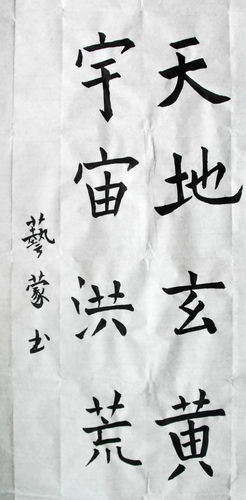 天地玄黄
宇宙洪荒
藝蒙书